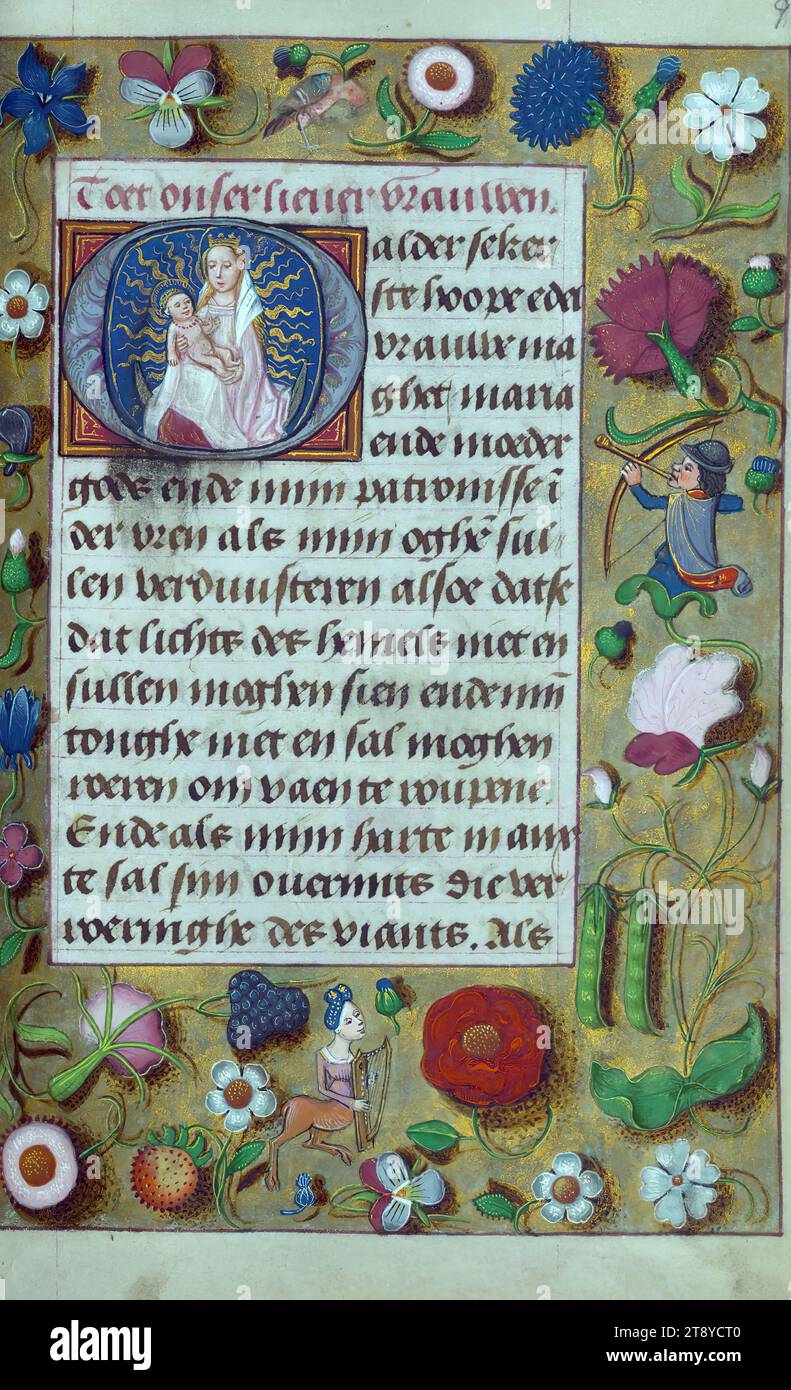 Toet onser lieuer vrauwen.
O alder seker
ste hoope edel
vrauwe ma
ghet maria
ende moeder
gods ende mijn patronisse ī
der vren als mijn oghē sul
len verduusteren alsoe datse
dat lichts des hemels niet en
sullen moghen sien ende mijn
tonghe niet en sal moghen
roeren om v aen te roupene.
Ende als mijn harte in anx
te sal sijn ouermits die ver
veringhe des viants. Als
alamy
Image ID: 2T8YCT0
www.alamy.com